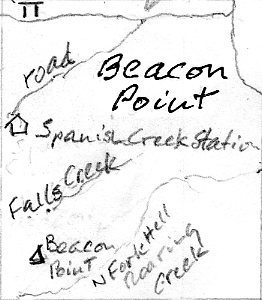 road
Beacon
Point
Spanish Creek Station
Falls Creek
Beacon
Point
N Fork Hell
Roaring
Creek